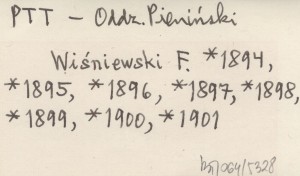 PTT – Oddz. Pieniński
Wiśniewski F. *1894,
*1895, *1896, *1897, *1898,
*1899, *1900, *1901